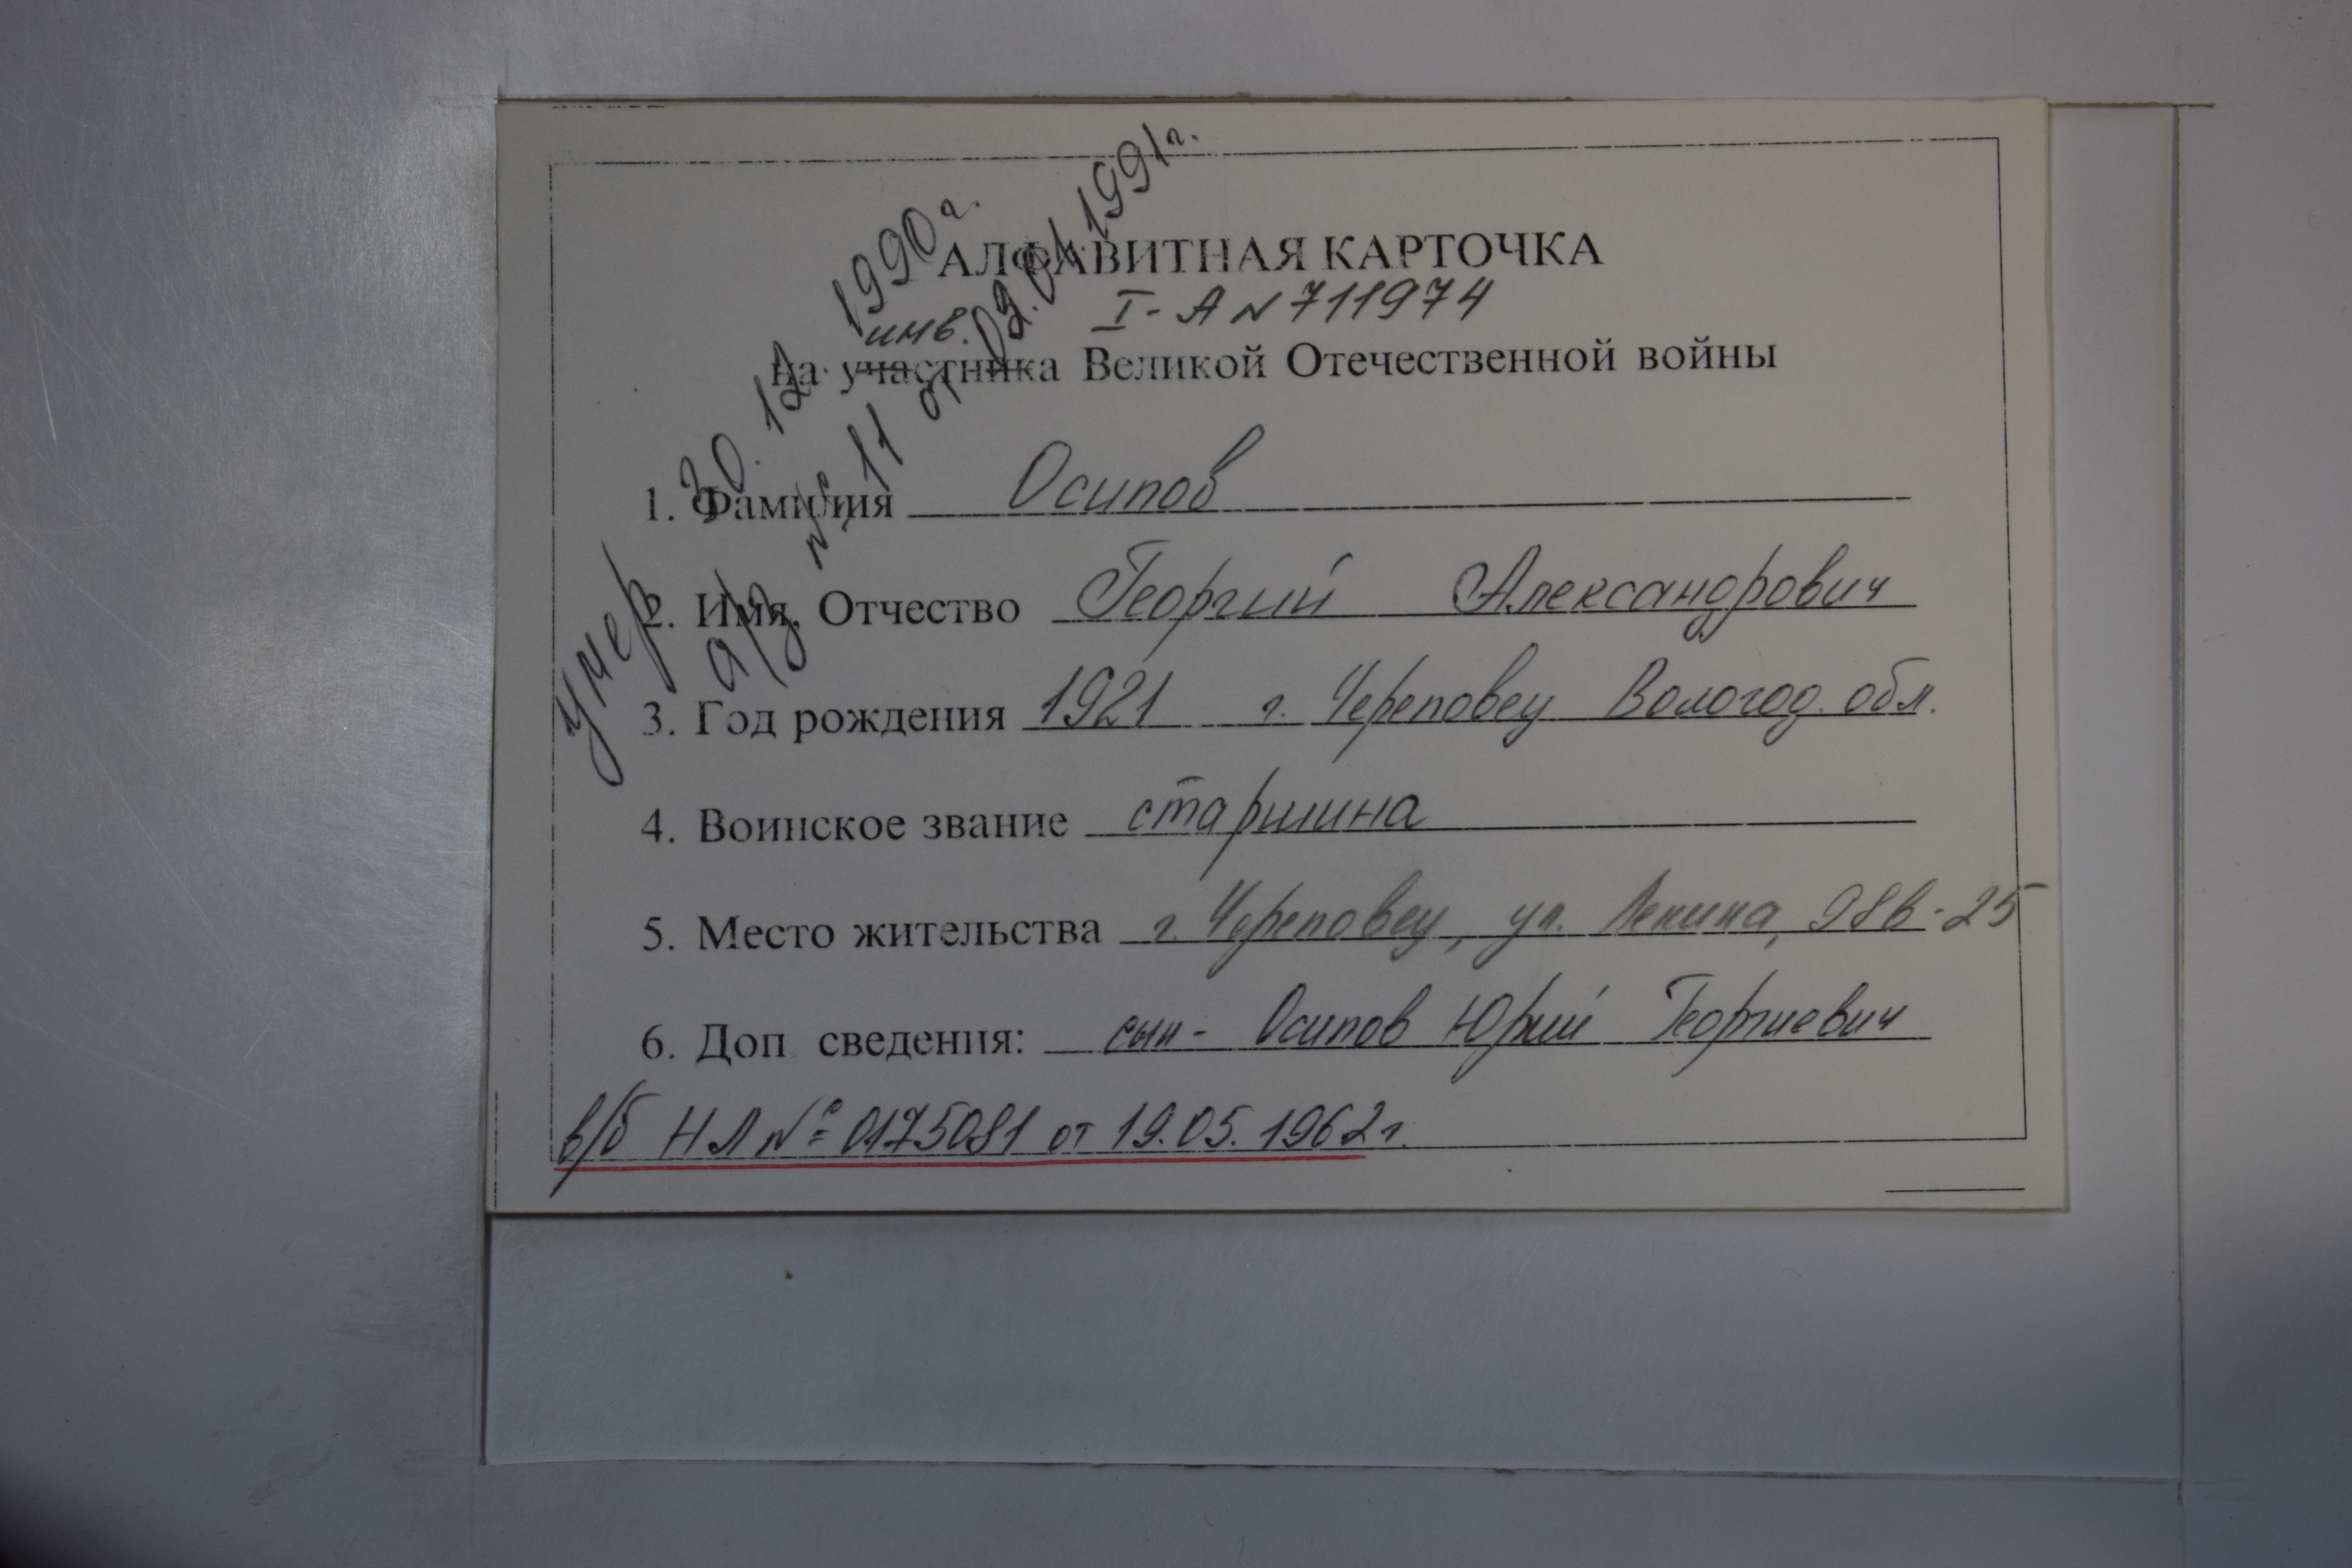 умер 30.12.1990г.
а/з № 11 от 02.01.1991г.
АЛФАВИТНАЯ КАРТОЧКА
инв. I-А N 711974
на участника Великой Отечественной войны
1. Фамилия Осипов
2. Имя, Отчество Георгий Александрович
3. Год рождения 1921 г. Череповец Вологод. обл.
4. Воинское звание старшина
5. Место жительства г. Череповец, ул. Ленина, 98в-25
6. Доп сведения: сын - Осипов Юрий Георгиевич
в/б НЛ № 0175081 от 19.05.1962г.